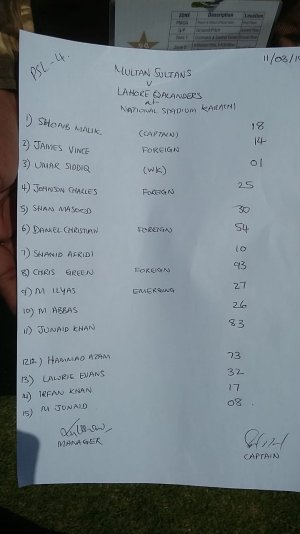 ZONE Description Location
PSL-4
11/03/19
MULTAN SULTANS
V
LAHORE QALANDERS
at
NATIONAL STADIUM KARACHI
1) SHOAIB MALIK (CAPTAIN) 18
2) JAMES VINCE FOREIGN 14
3) UMAR SIDDIQ (WK) 01
4) JOHNSON CHARLES FOREIGN 25
5) SHAN MASOOD 30
6) DANIEL CHRISTIAN FOREIGN 54
7) SHAHID AFRIDI 10
8) CHRIS GREEN FOREIGN 93
9) M ILYAS EMERGING 27
10) M ABBAS 26
11) JUNAID KHAN 83
12) HAMMAD AZAM 73
13) LAURIE EVANS 32
14) IRFAN KHAN 17
15) M JUNAID 08
MANAGER CAPTAIN